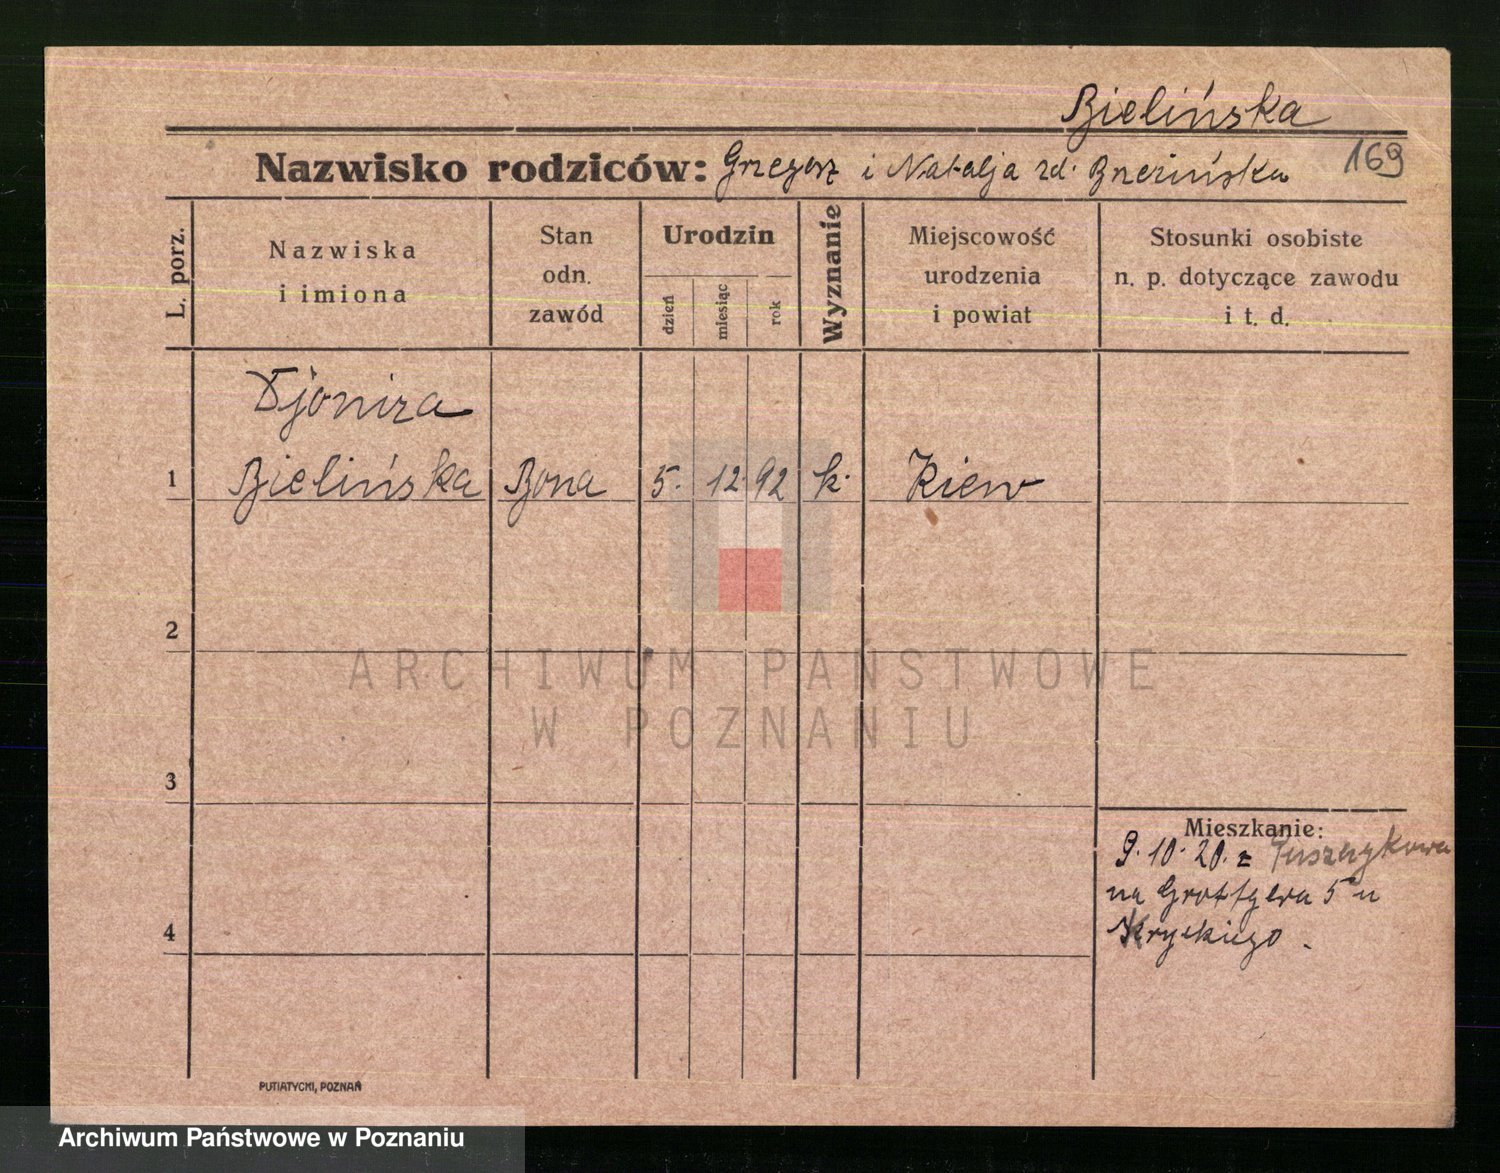 Bielińska
169
Nazwisko rodziców: Grzegorz i Natalja zd. Brzezińska
L. porz.
Nazwiska
i imiona
Stan
odn.
zawód
Urodzin
dzień
miesiąc
rok
Wyznanie
Miejscowość
urodzenia
i powiat
Stosunki osobiste
n. p. dotyczące zawodu
i t. d.
1
Bielińska Bona 5. 12. 92 k. Kiew
2
3
4
ARCHIWUM PAŃSTWOWE
W POZNANIU
Mieszkanie:
9. 10. 20. z
na Grottgera 5 u
PUTIATYCKI, POZNAŃ
Archiwum Państwowe w Poznaniu